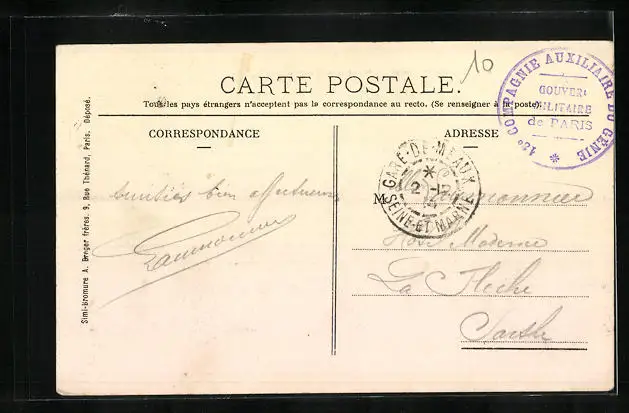 10
CARTE POSTALE.
Tous les pays étrangers n'acceptent pas la correspondance au recto. (Se renseigner à la poste).
CORRESPONDANCE
ADRESSE
13e COMPAGNIE AUXILIAIRE DU GÉNIE
GOUVERt
MILITAIRE
de PARIS
GARE-DE-MEAUX
2 -12
14
SEINE-ET-MARNE
Simi-Bromure A. Breger frères. 9, Rue Thénard, Paris. Déposé.
amitiés bien affectueuses
M
Hôtel Moderne
La Flèche
Sarthe